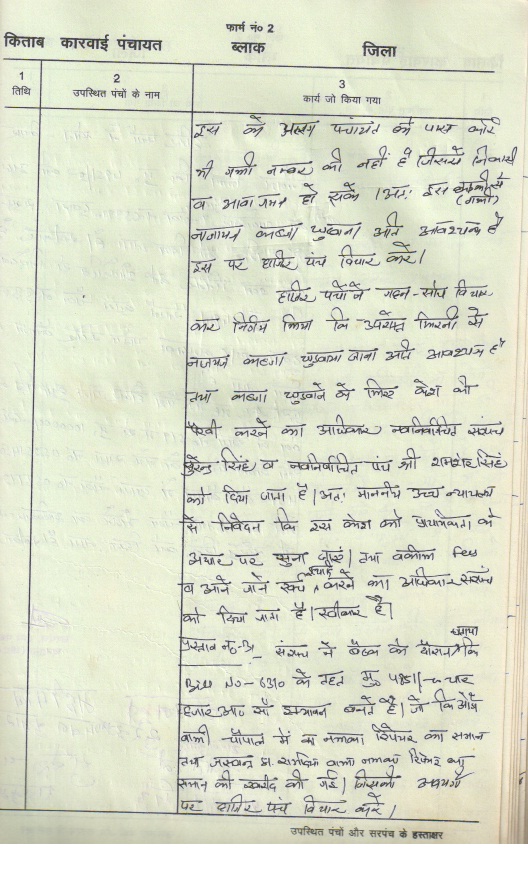 फार्म नं० 2
किताब कारवाई पंचायत ब्लाक जिला
1 2 3
तिथि उपस्थित पंचों के नाम कार्य जो किया गया
इस के अलावा पंचायत के पास कोई
भी गली नम्बर की नहीं है जिससे निकासी
व आवा गमन हो सके । अतः इस
नाजायज कब्जा छुड़वाना अति आवश्यक है
इस पर हाजिर पंच विचार करें।
हाजिर पंचों ने गहन-सोच विचार
कर निर्णय लिया कि उपरोक्त फिरनी से
नजायज कब्जा छुड़वाया जाना अति आवश्यक है
तथा कब्जा छुड़वाने के लिए केश की
पैरवी करने का अधिकार नवनिर्वाचित सरपंच
सुरेन्द्र सिंह व नवनिर्वाचित पंच श्री शमशेर सिंह
को दिया जाता है । अतः माननीय उच्च न्यायालय
से निवेदन कि इस केश को प्राथमिकता के
अधार पर सुना जाए। तथा वकील fees
व आने जाने खर्च करने का अधिकार सरपंच
को दिया जाता है। स्वीकार है।
प्रस्ताव नं०-3:- सरपंच ने बैठक के दौरान बताया कि
Bill No-6310 के तहत मु० 4851/- चार
हजार आठ सौ इक्यावन बनते है। जो कि
वाली चौपाल में का नलका रिपेयर का समान
तथा जसवन्त वाला नलका रिपेयर का
समान की खरीद की गई। जिसकी
पर हाजिर पंच विचार करें।
उपस्थित पंचों और सरपंच के हस्ताक्षर